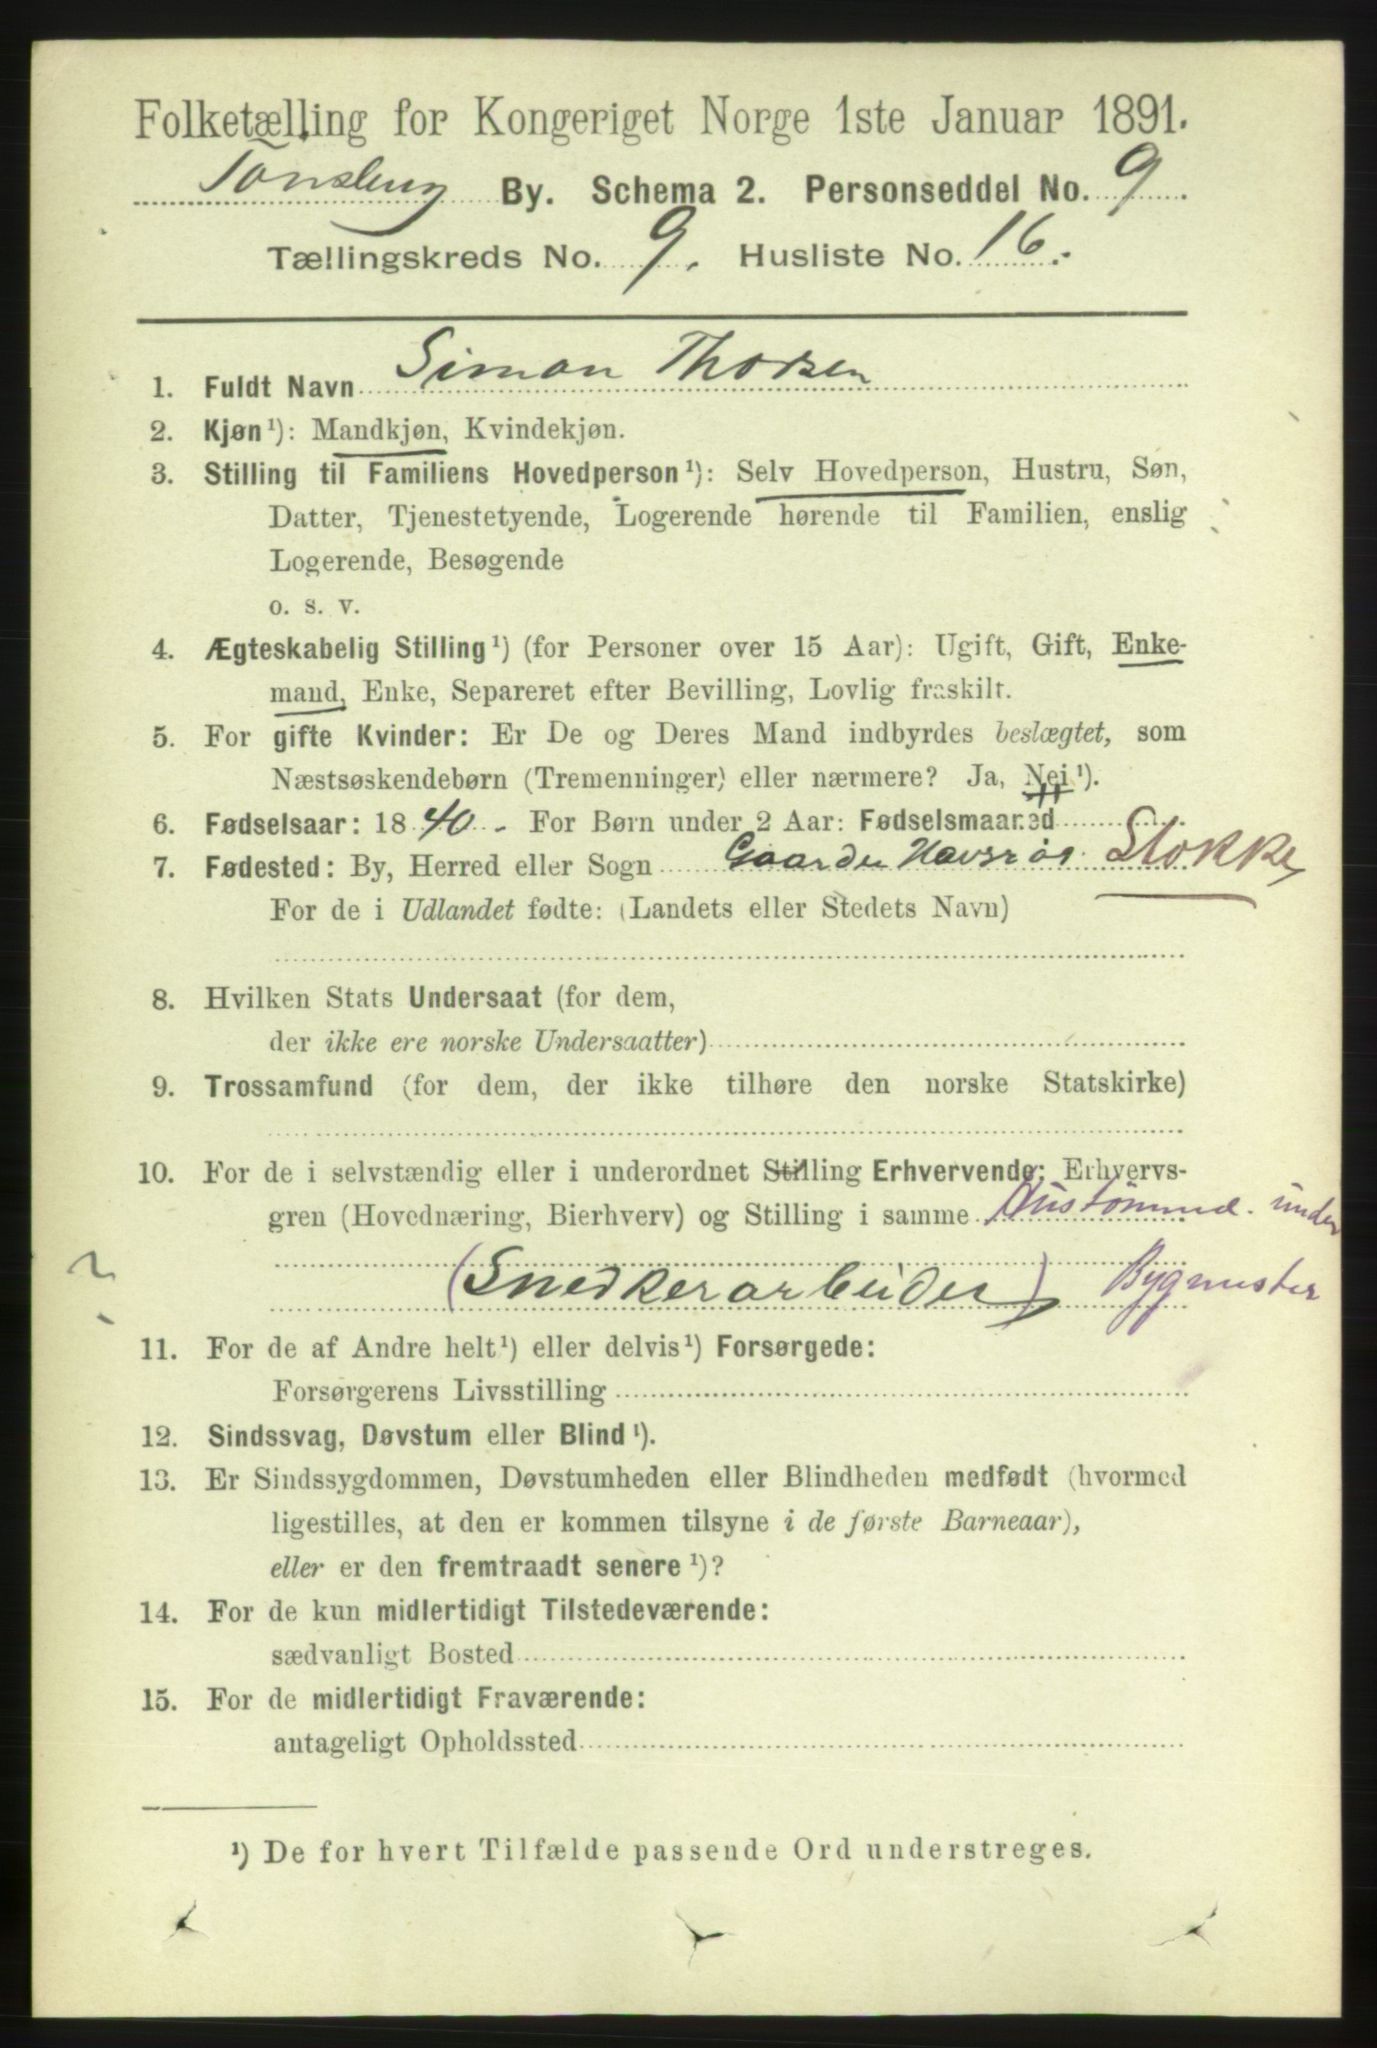 Folketælling for Kongeriget Norge 1ste Januar 1891.
Tønsberg By. Schema 2. Personseddel No. 9
Tællingskreds No. 9. Husliste No. 16.
1. Fuldt Navn Simon Thorsen
2. Kjøn¹): Mandkjøn, Kvindekjøn.
3. Stilling til Familiens Hovedperson¹): Selv Hovedperson, Hustru, Søn,
Datter, Tjenestetyende, Logerende hørende til Familien, enslig
Logerende, Besøgende
o. s. v.
4. Ægteskabelig Stilling¹) (for Personer over 15 Aar): Ugift, Gift, Enke-
mand, Enke, Separeret efter Bevilling, Lovlig fraskilt.
5. For gifte Kvinder: Er De og Deres Mand indbyrdes beslægtet, som
Næstsøskendebørn (Tremenninger) eller nærmere? Ja, Nei¹).
6. Fødselsaar: 1840. For Børn under 2 Aar: Fødselsmaaned
7. Fødested: By, Herred eller Sogn Gaarden Stokke
For de i Udlandet fødte: (Landets eller Stedets Navn)
8. Hvilken Stats Undersaat (for dem,
der ikke ere norske Undersaatter)
9. Trossamfund (for dem, der ikke tilhøre den norske Statskirke)
10. For de i selvstændig eller i underordnet Stilling Erhvervende: Erhvervs-
gren (Hovednæring, Bierhverv) og Stilling i samme Hustømmerm. under
(Snedkerarbeider) Bygmester
11. For de af Andre helt¹) eller delvis¹) Forsørgede:
Forsørgerens Livsstilling
12. Sindssvag, Døvstum eller Blind¹).
13. Er Sindssygdommen, Døvstumheden eller Blindheden medfødt (hvormed
ligestilles, at den er kommen tilsyne i de første Barneaar),
eller er den fremtraadt senere¹)?
14. For de kun midlertidigt Tilstedeværende:
sædvanligt Bosted
15. For de midlertidigt Fraværende:
antageligt Opholdssted
¹) De for hvert Tilfælde passende Ord understreges.